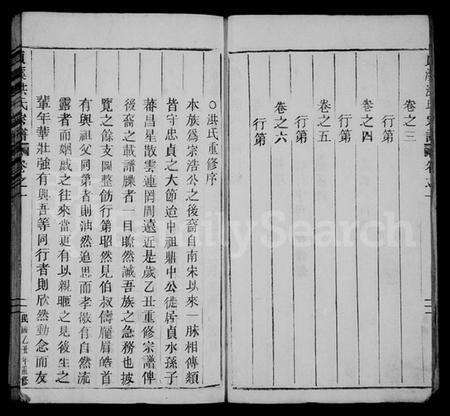 卷之三
行第
卷之四
行第
卷之五
行第
卷之六
行第
○洪氏重修序
本族為宗浩公之後裔自南宋以來一脉相傳類
皆守忠貞之大節迨中祖鼎中公徒居貞水孫子
蕃昌星散雲連罔周遠近是歲乙丑重修宗譜俾
後裔之載譜牒者一目瞭然誠吾族之急務也披
覽之餘支圖整飭行第昭然見伯叔儔龐眉皓首
有與祖父同第者則油然追思而孝敬有自然流
露者而姻戚之往來當更有以親暱之見後生之
輩年華壯強有與吾等同行者則欣然動念而友
洪氏宗譜
卷之一
FamilySearch